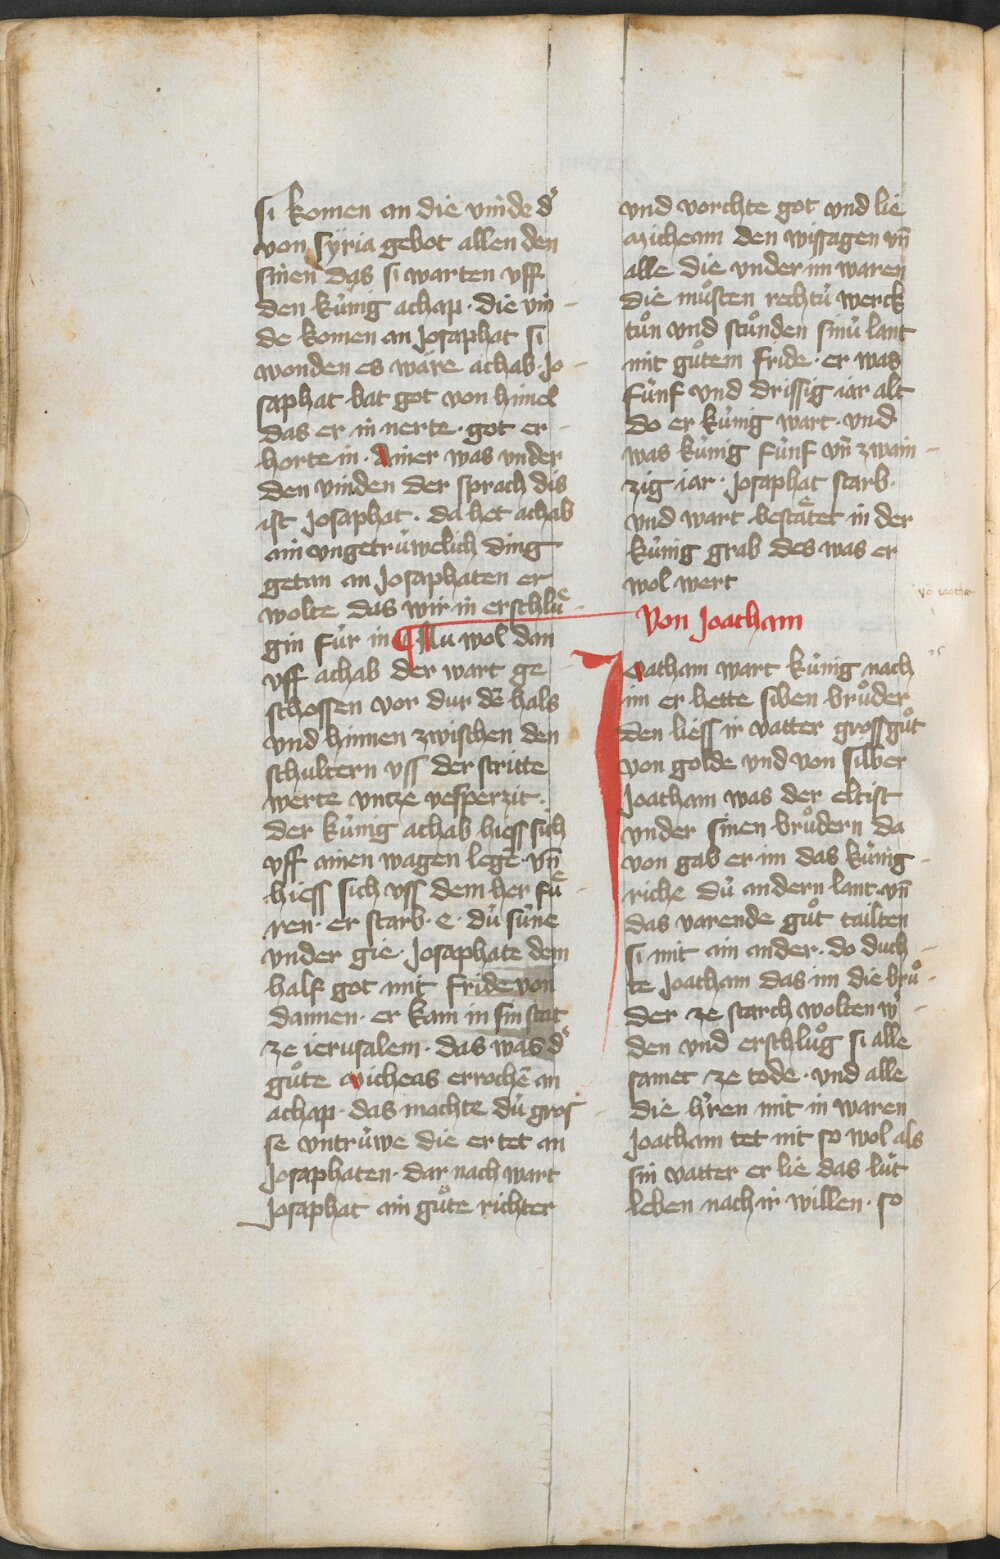 si komen an die vinde dˀ
von Syria gebot allen den
sinen das si warten vff
den kúnig achap · die vin
de komen an Josaphat si
wonden es wäre achab · Jo
saphat bat got von himel
das er in nerte · got er
horte in · Ainer was vnder
den vinden der sprach dis
ist Josaphat · da het achab
ain vngetrúwelich ding
getan an Josaphaten er
wolte das wir in erschluͤ
gin fúr in ¶ Nu wol dan
vff achab der wart ge
schossen vor dur dē hals
vnd hinnen zwischen den
schultern vss der stritte
werte vntze vesperzit ·
der kúnig achab hiess sich
vff ainen wagen legē · vn̄
hiess sich vss dem her fuͤ
ren · er starb · e · dú súne
vnder gie · Josaphate dem
half got mit fride von
dannen · er kam in sin stat
ze ierusalem · das was dˀ
guͦte Micheas errochē an
achap · das mochte dú gros
se vntrúwe die er tet an
Josaphaten · dar nach wart
Josaphat ain guͦte richter
vnd vorchte got vnd lie
Micheam den wissagen vn̄
alle die vnder im waren
die muͦsten rechtú werck
tuͦn vnd stuͦnden sinú lant
mit guͦtem fride · er was
fúnf vnd drissig iar alt
do er kúnig wart · vnd
was kúnig fúnf vn̄ zwain
zig iar · Josaphat starb ·
vnd wart bestaͤtet in der
kúnig grab des was er
wol wert
Von Joatham
Joatham wart kúnig nach
im er hette siben bruͦder
den liess ir vatter gross guͦt
von golde vnd von silber
Joatham was der eltist
vnder sinen bruͦdern da
von gab er im das kúnig
riche dú andern lant vn̄
das varende guͦt tailten
si mit ain ander · do duch
te Joatham das im die bruͦ
der ze starch wolten wˀ
den vnd erschluͦg si alle
samet ze tode · vnd alle
die hˀren mit in waren
Joatham tet nit so wol als
sin vatter er lie das lút
leben nach ir willen · so